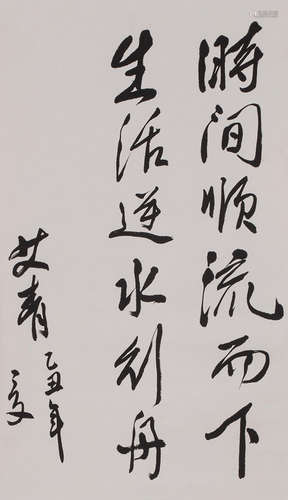 時间順流而下
生活逆水行舟
艾青
乙丑年